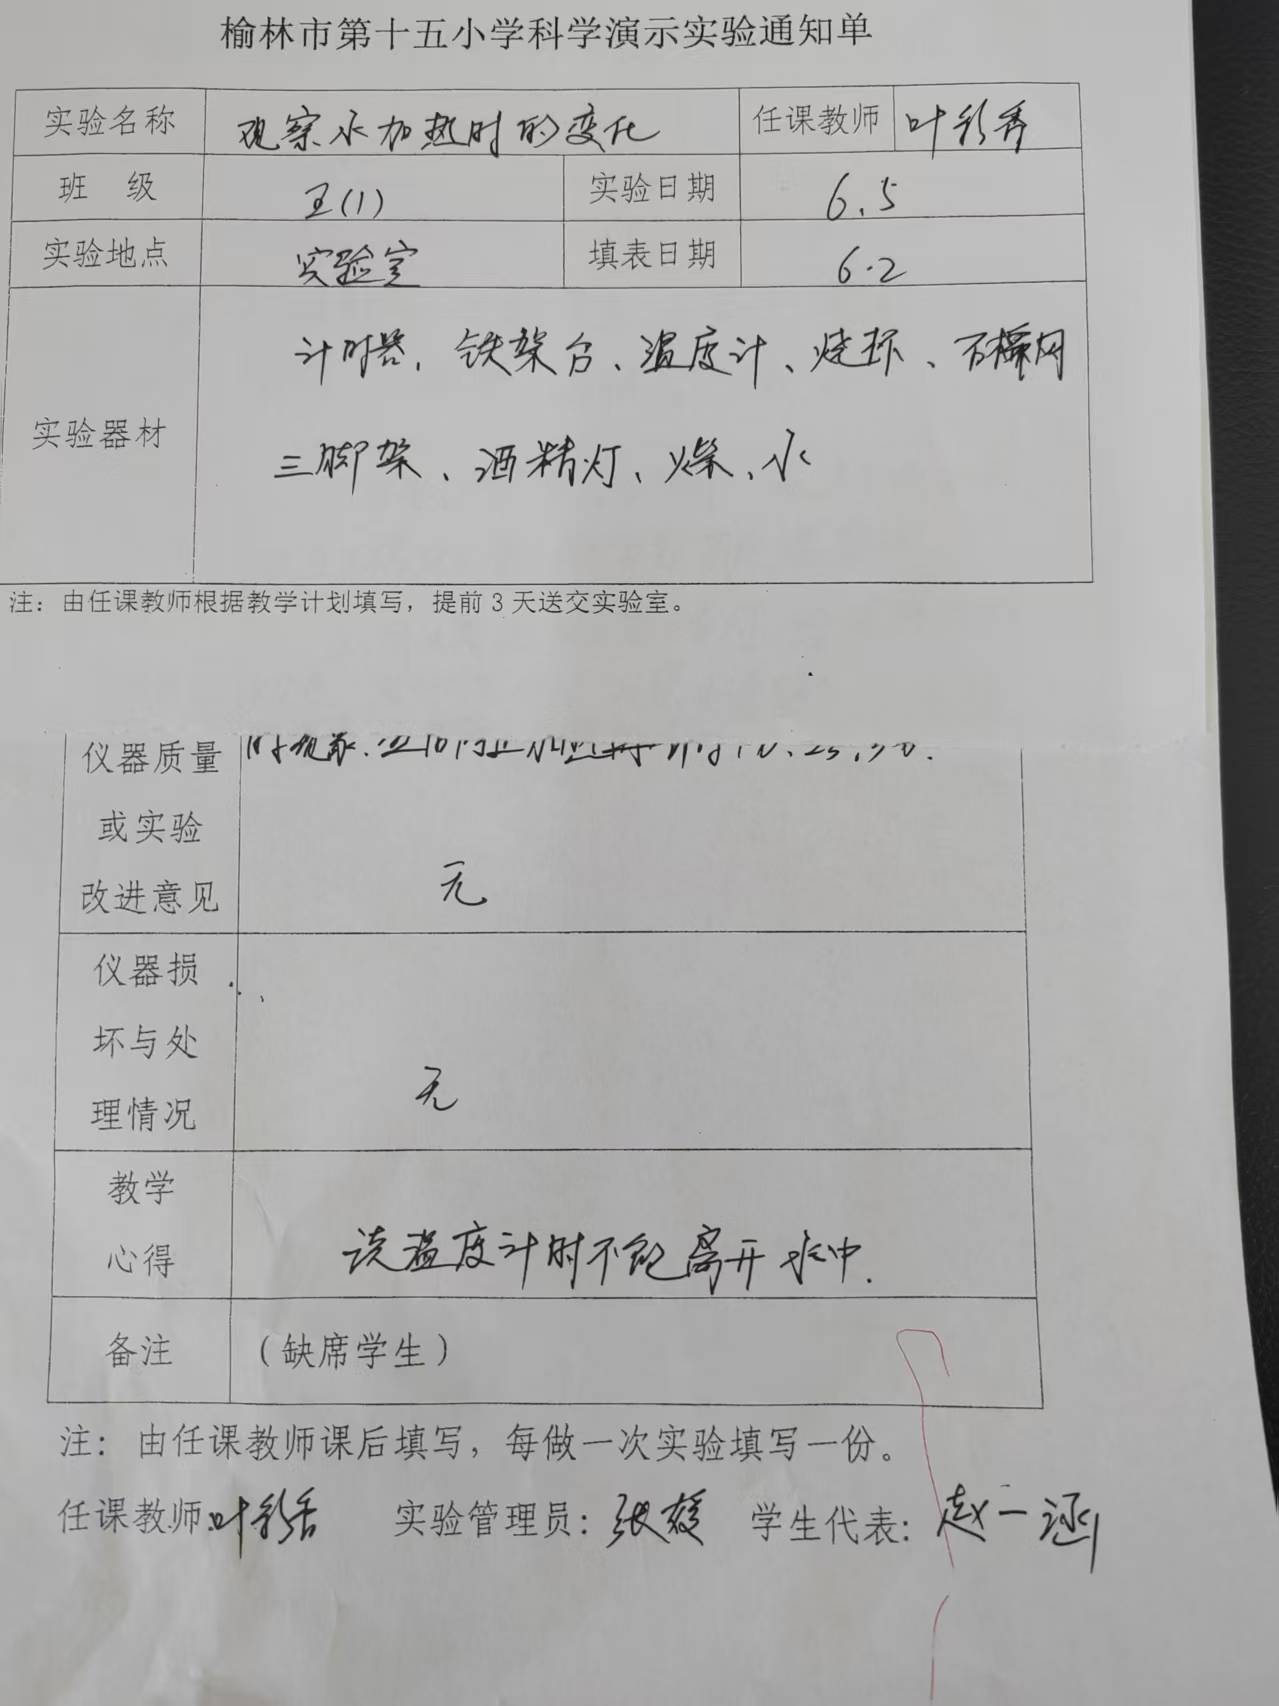 榆林市第十五小学科学演示实验通知单
实验名称 观察水加热时的变化 任课教师 叶彩秀
班 级 五(1) 实验日期 6.5
实验地点 实验室 填表日期 6.2
计时器,铁架台、温度计、烧杯、石棉网
实验器材
三脚架、酒精灯、火柴、水
注:由任课教师根据教学计划填写,提前3天送交实验室。
仪器质量
或实验
改进意见 无
仪器损
坏与处
理情况 无
教学
心得 读温度计时不能离开水中.
备注 (缺席学生)
注:由任课教师课后填写,每做一次实验填写一份。
任课教师:叶彩秀 实验管理员:张媛 学生代表:赵一涵